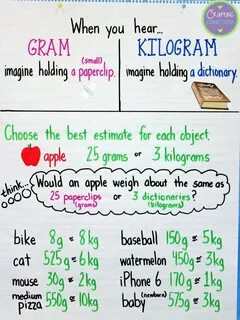 Crafting Connections
When you hear...
GRAM
(small)
imagine holding a paperclip.
KILOGRAM
imagine holding a dictionary.
Choose the best estimate for each object.
apple 25 grams or 3 kilograms
think...
Would an apple weigh about the same as
25 paperclips or 3 dictionaries?
(grams) (kilograms)
bike 8g or 8kg
cat 525g or 6kg
mouse 30g or 2kg
medium pizza 550g or 10kg
baseball 150g or 5kg
watermelon 450g or 3kg
iPhone 6 170g or 1kg
(newborn)
baby 575g or 3kg